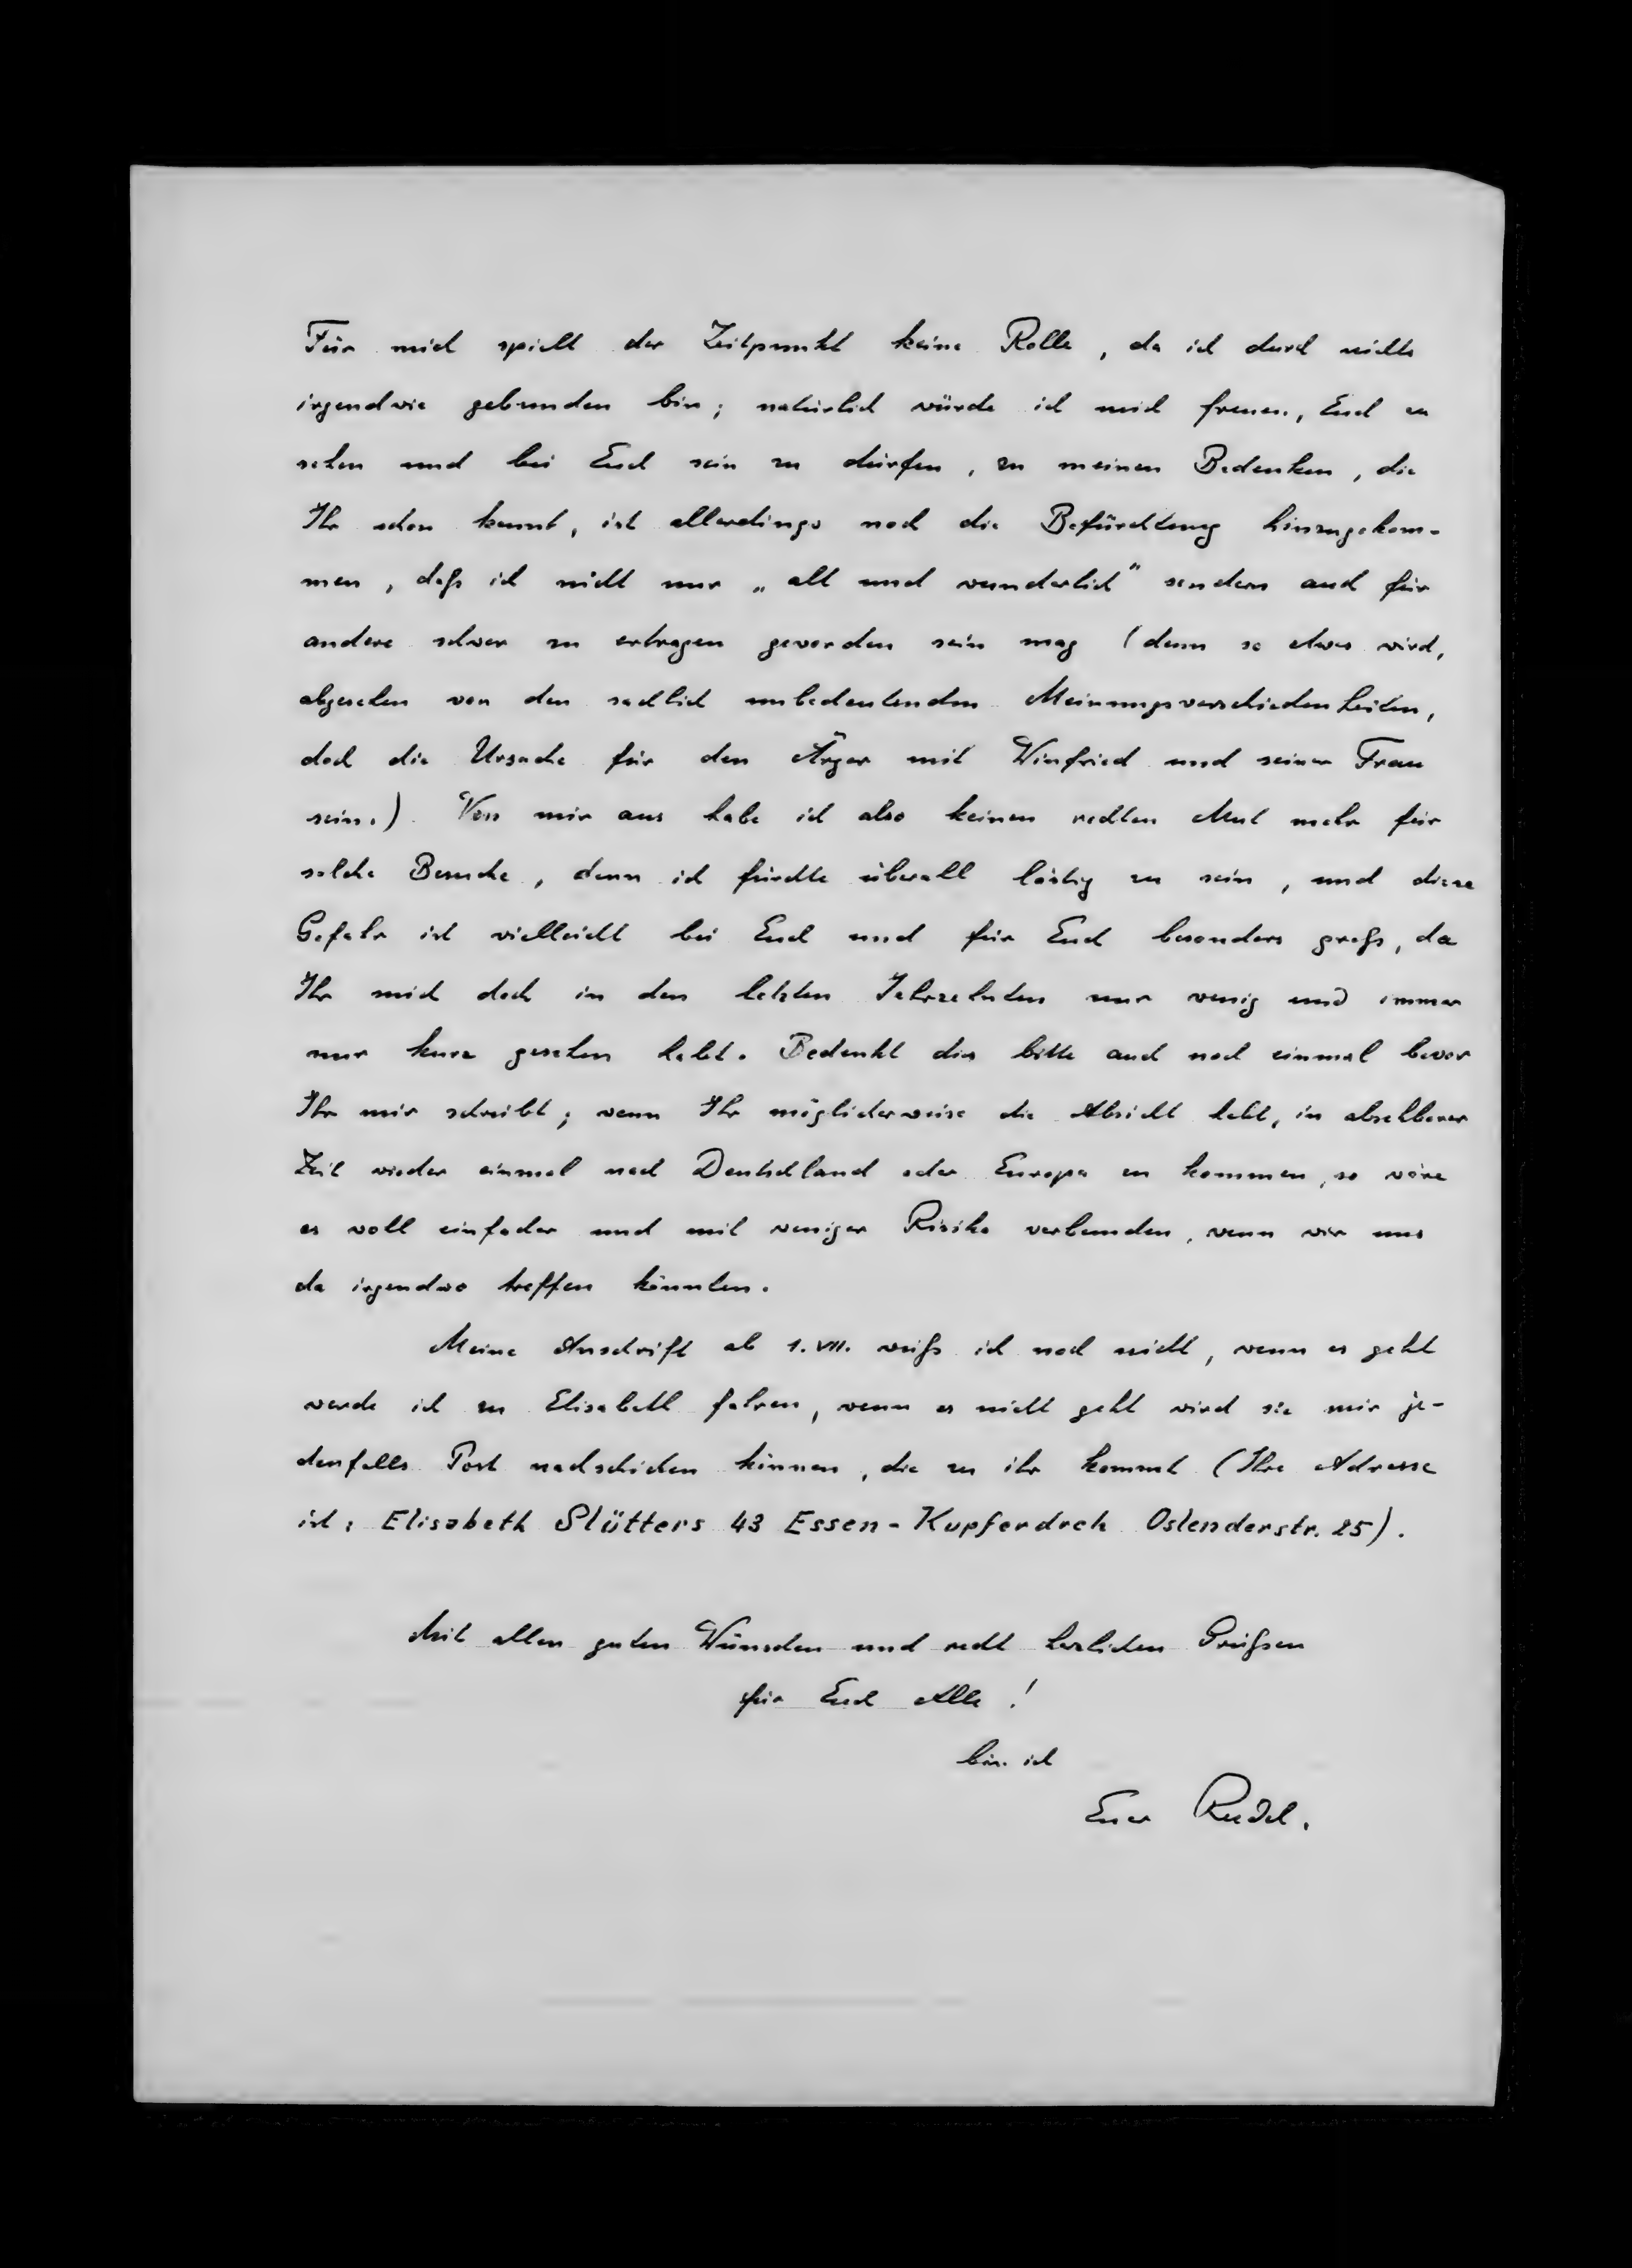 Für mich spielt der Zeitpunkt keine Rolle, da ich durch nichts
irgendwie gebunden bin; natürlich würde ich mich freuen, Euch zu
sehen und bei Euch sein zu dürfen, zu meinen Bedenken, die
Ihr schon kennt, ist allerdings noch die Befürchtung hinzugekom-
men, daß ich nicht nur „alt und wunderlich" sondern auch für
andere schwer zu ertragen geworden sein mag (denn so etwas wird,
abgesehen von den sachlich unbedeutenden Meinungsverschiedenheiten,
doch die Ursache für den Ärger mit Winfried und seiner Frau
sein.) Von mir aus habe ich also keinen rechten Mut mehr für
solche Besuche, denn ich fürchte überall lästig zu sein, und diese
Gefahr ist vielleicht bei Euch und für Euch besonders groß, da
Ihr mich doch in den letzten Jahrzehnten nur wenig und immer
nur kurz gesehen habt. Bedenkt dies bitte auch noch einmal bevor
Ihr mir schreibt; wenn Ihr möglicherweise die Absicht habt, in absehbarer
Zeit wieder einmal nach Deutschland oder Europa zu kommen, so wäre
es wohl einfacher und mit weniger Risiko verbunden, wenn wir uns
da irgendwo treffen könnten.
Meine Anschrift ab 1. VII. weiß ich noch nicht, wenn es geht
werde ich zu Elisabeth fahren, wenn es nicht geht wird sie mir je-
denfalls Post nachschicken können, die zu ihr kommt (Ihre Adresse
ist: Elisabeth Slütters 43 Essen-Kupferdreh Oslenderstr. 25).
Mit allen guten Wünschen und recht herzlichen Grüßen
für Euch Alle!
bin ich
Euer Rudel.